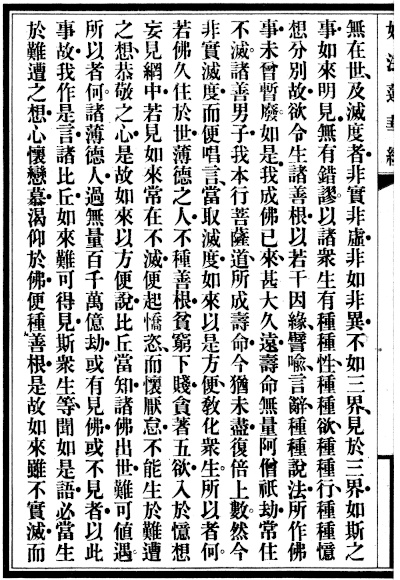 無在世及滅度者非實非虛非如非異不如三界見於三界如斯之
事如來明見無有錯謬以諸衆生有種種性種種欲種種行種種憶
想分別故欲令生諸善根以若干因緣譬喻言辭種種說法所作佛
事未曾暫廢如是我成佛已來甚大久遠壽命無量阿僧祇劫常住
不滅諸善男子我本行菩薩道所成壽命今猶未盡復倍上數然今
非實滅度而便唱言當取滅度如來以是方便敎化衆生所以者何
若佛久住於世薄德之人不種善根貧窮下賤貪著五欲入於憶想
妄見網中若見如來常在不滅便起憍恣而懷厭怠不能生於難遭
之想恭敬之心是故如來以方便說比丘當知諸佛出世難可値遇
所以者何諸薄德人過無量百千萬億劫或有見佛或不見者以此
事故我作是言諸比丘如來難可得見斯衆生等聞如是語必當生
於難遭之想心懷戀慕渴仰於佛便種善根是故如來雖不實滅而